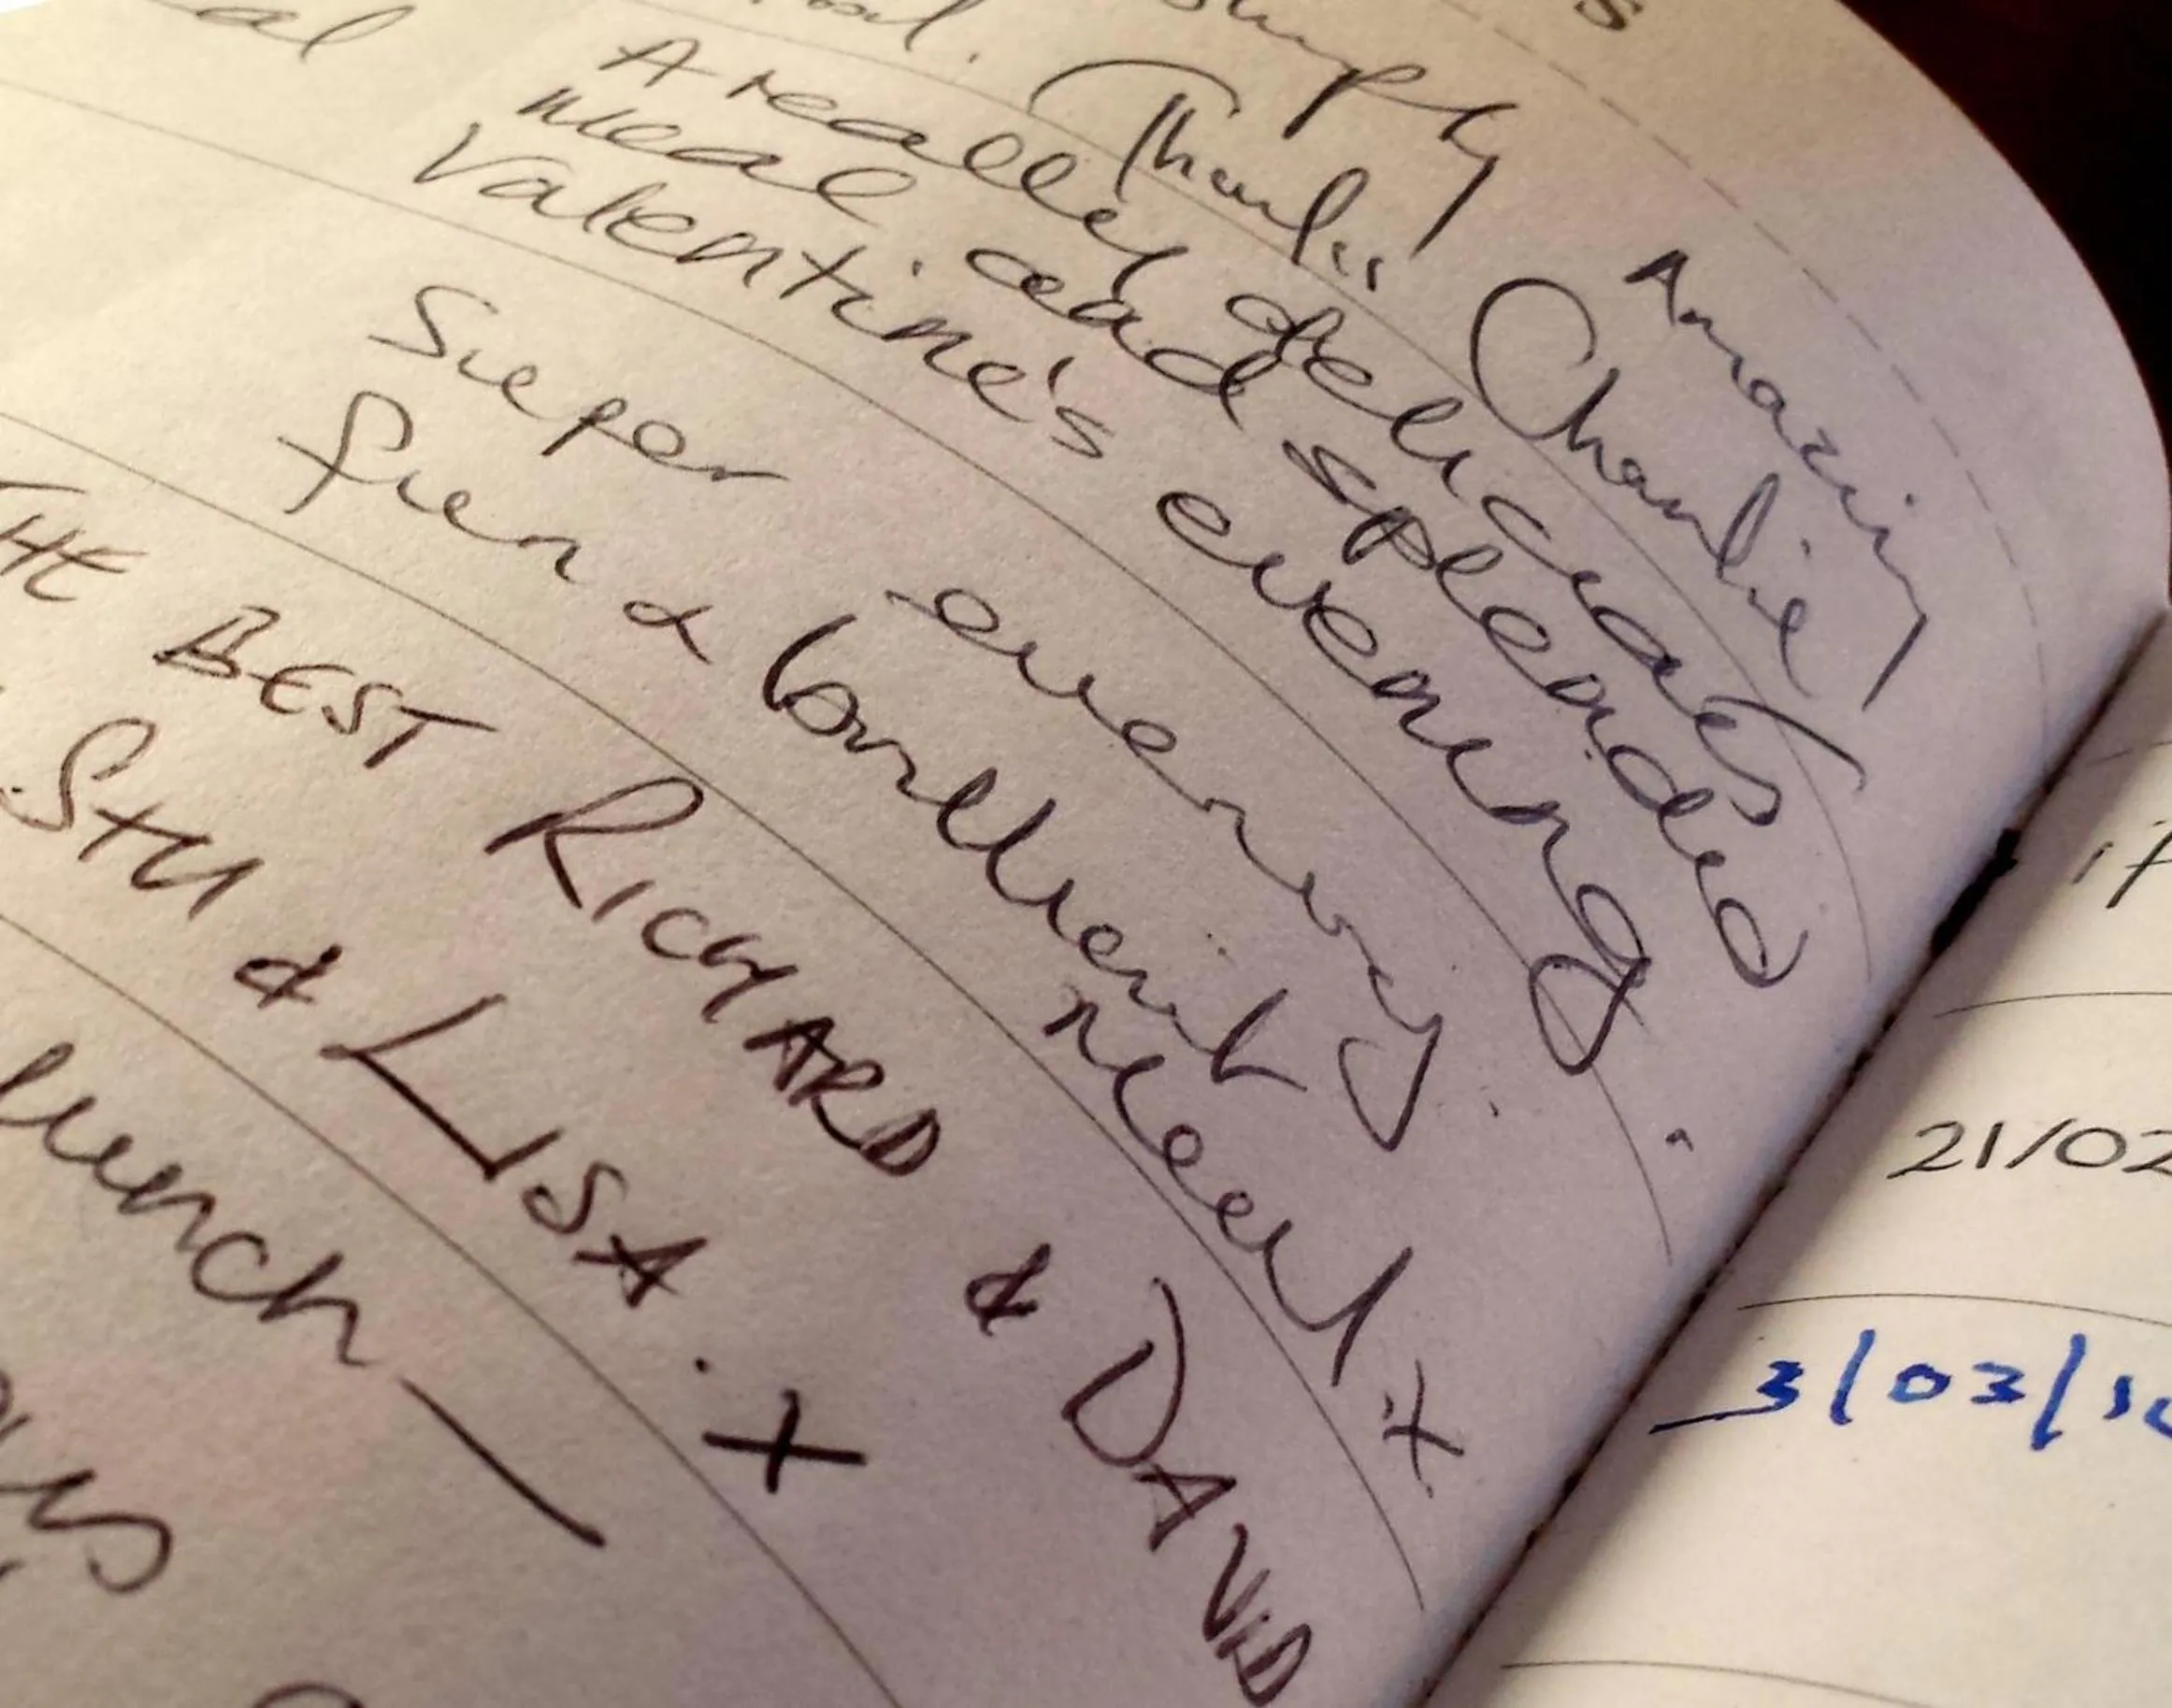 Simply Amazing
Thanks Charlie!
A really delicious
meal and splendid
Valentine's evening.
Super evening.
fun & brilliant meal x
THE BEST RICHARD & DAVID
STU & LISA. X
lunch
21/02
3/03/